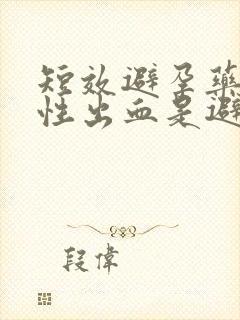 短效避孕藥
性出血是避
段偉